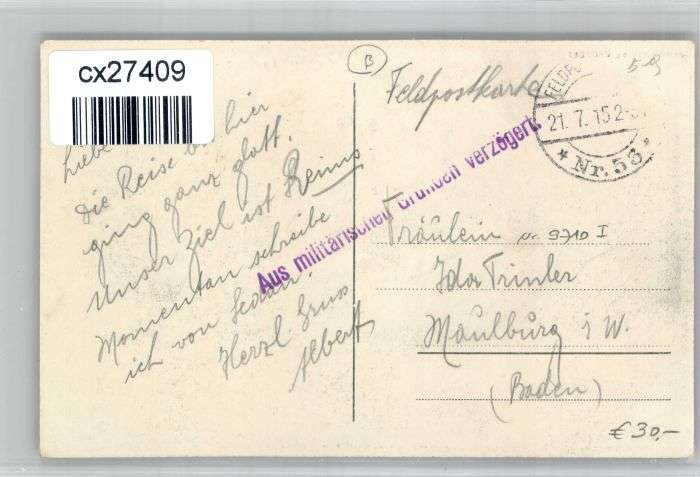 cx27409
B
Feldpostkarte
5-9
21. 7. 15 2-
* Nr. 53 *
Aus militärischen Gründen verzögert.
Liebe
Die Reise bis hier
ging ganz glatt.
Unser Ziel ist Reims
Momentan schreibe
ich von Sedan.
Herzl Gruss
Albert
Fräulein
nr. 9710 I
Ida Trinler
Maulburg i W.
(Baden)
€ 30,-